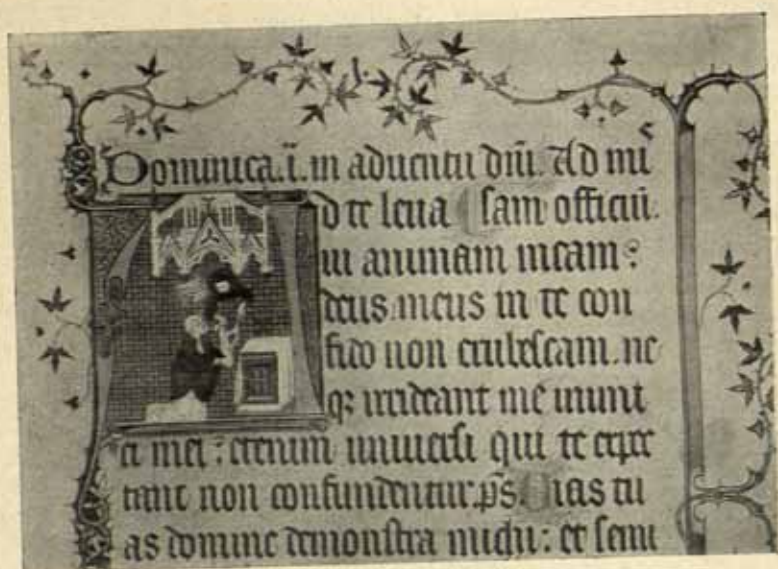 Dominica .i. in aduentu dñi. Ad mi
d te leua sam officiū.
ui animam meam :
deus meus in te con
fido non erubescam. ne
qȝ irrideant me inimi
ci mei : etenim uniuersi qui te expec
tant non confundentur. p̄s. Uias tu
as domine demonstra michi : et semi